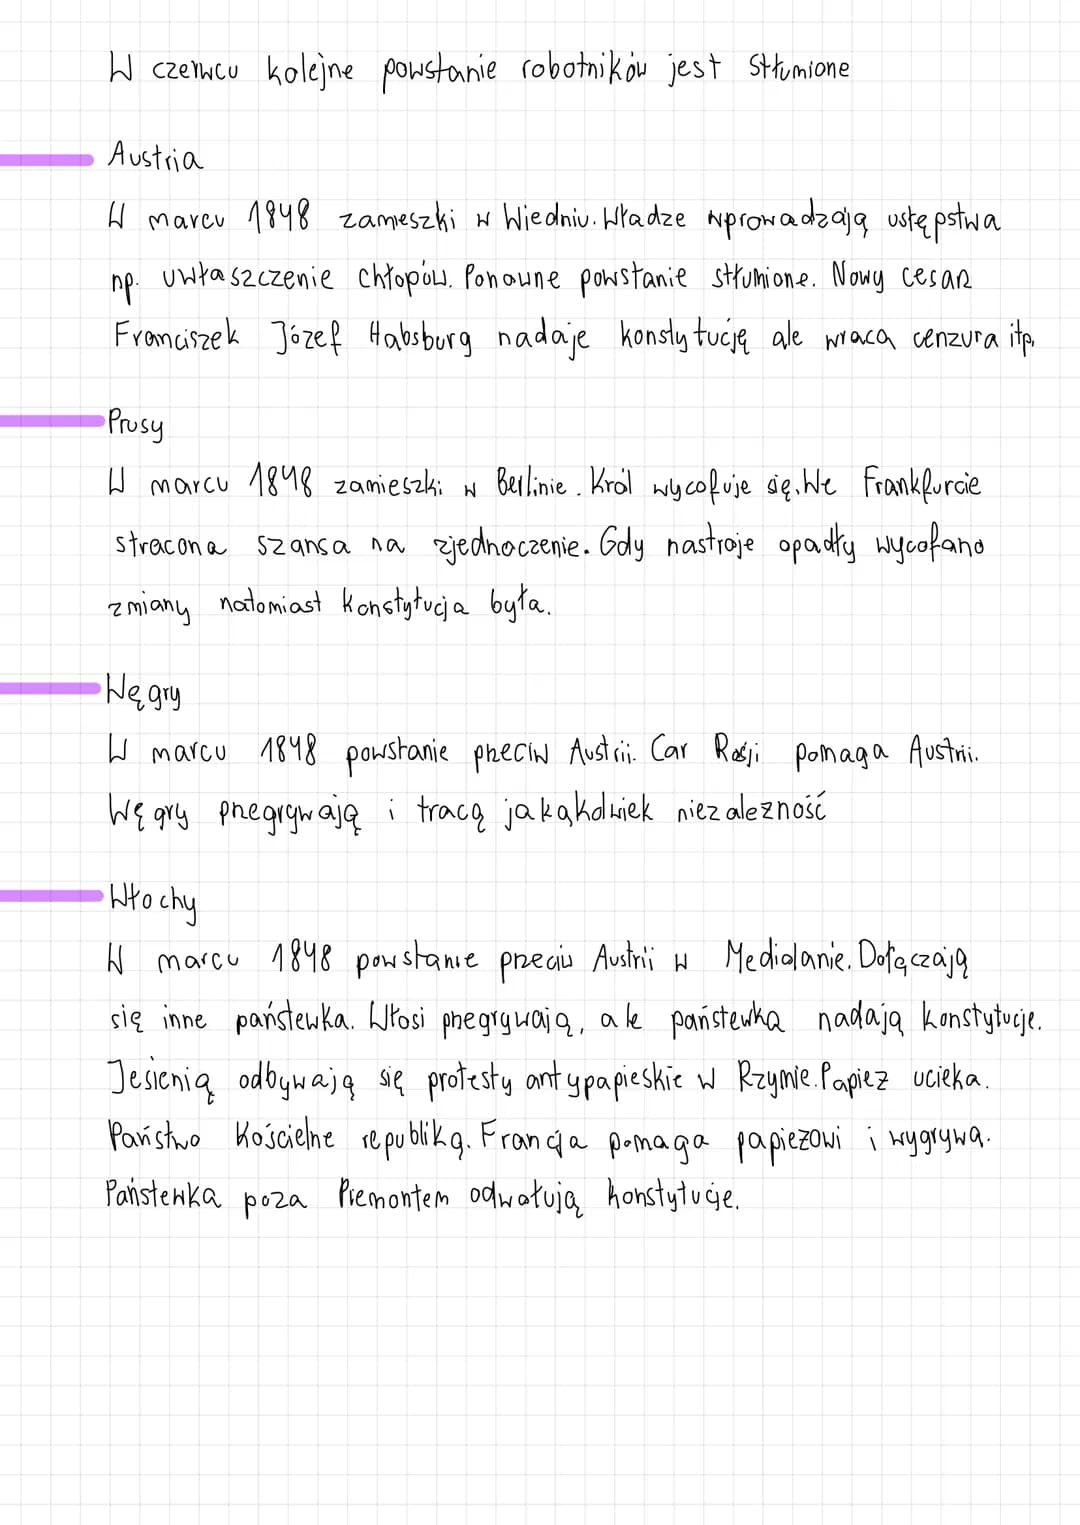 W czerwcu kolejne powstanie robotników jest stłumione
Austria
W marcu 1848 zamieszki w Wiedniu. Władze wprowadzają ustępstwa
np. uwłaszczenie chłopów. Ponowne powstanie stłumione. Nowy cesarz
Franciszek Józef Habsburg nadaje konstytucję ale wraca cenzura itp.
Prusy
W marcu 1848 zamieszki w Berlinie. Król wycofuje się. We Frankfurcie
stracona szansa na zjednoczenie. Gdy nastroje opadły wycofano
zmiany natomiast konstytucja była.
Węgry
W marcu 1848 powstanie przeciw Austrii. Car Rosji pomaga Austrii.
Węgry przegrywają i tracą jakąkolwiek niezależność
Włochy
W marcu 1848 powstanie przeciw Austrii w Mediolanie. Dołączają
się inne państewka. Włosi przegrywają, ale państewka nadają konstytucje.
Jesienią odbywają się protesty antypapieskie w Rzymie. Papież ucieka.
Państwo Kościelne republiką. Francja pomaga papieżowi i wygrywa.
Państewka poza Piemontem odwołują konstytucje.